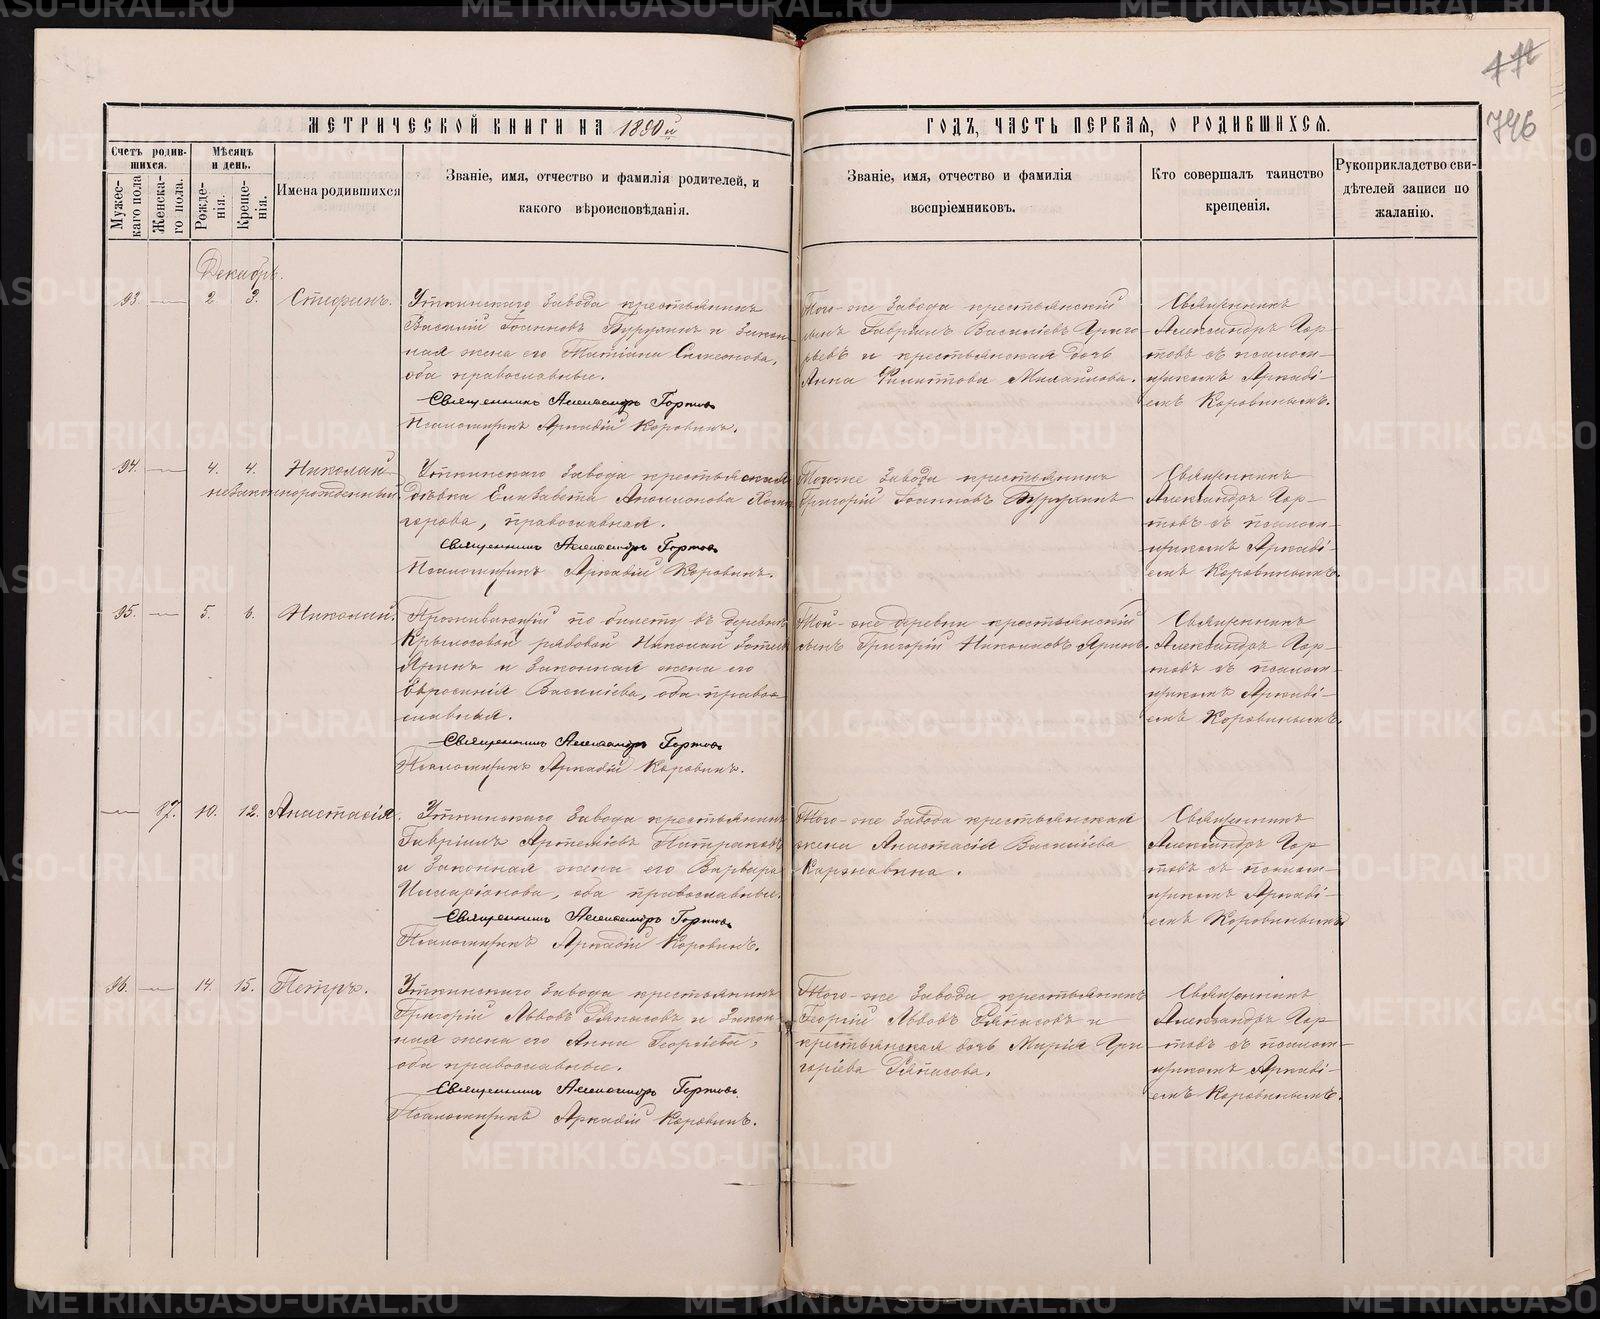 МЕТРИЧЕСКОЙ КНИГИ НА 1890й
ГОДЪ, ЧАСТЬ ПЕРВАЯ, О РОДИВШИХСЯ.
746
Счетъ родив-
шихся.
Мужес-
каго пола
Женска-
го пола.
Мѣсяцъ
и день.
Рожде-
нія.
Креще-
нія.
Имена родившихся
Званіе, имя, отчество и фамилія родителей, и
какого вѣроисповѣданія.
Званіе, имя, отчество и фамилія
воспріемниковъ.
Кто совершалъ таинство
крещенія.
Рукоприкладство сви-
дѣтелей записи по
жаланію.
Декабрь.
93. — 2. 3.
Уткинскаго завода крестьянинъ
Василій Іоанновъ и закон-
ная жена его Татіана Симеонова,
оба православные.
Священникъ Александръ Гортовъ
Псаломщикъ Аркадій Коровинъ.
Того-же завода крестьянскій
сынъ Гавріилъ Василіевъ Григо-
рьевъ и крестьянская дочь
Анна Филиппова Михайлова.
Священникъ
Александръ Гор-
товъ съ псалом-
щикомъ Аркаді-
емъ Коровинымъ.
94. — 4. 4. Николай
незаконнорожденный.
Уткинскаго завода крестьянская
дѣвка Елизавета
горова, православная.
Священникъ Александръ Гортовъ
Псаломщикъ Аркадій Коровинъ.
Тогоже завода крестьянинъ
Григорій Іоанновъ
Священникъ
Александръ Гор-
товъ съ псалом-
щикомъ Аркаді-
емъ Коровинымъ.
95. — 5. 6. Николай.
Проживающій по билету въ деревнѣ
Крылосовой рядовой Николай
Яринъ и законная жена его
Евросинія Василіева, оба право-
славныя.
Священникъ Александръ Гортовъ
Псаломщикъ Аркадій Коровинъ.
Той-же деревни крестьянскій
сынъ Григорій Николаевъ Яринъ.
Священникъ
Александръ Гор-
товъ съ псалом-
щикомъ Аркаді-
емъ Коровинымъ.
— 87. 10. 12. Анастасія.
Уткинскаго завода крестьянинъ
Гавріилъ Артеміевъ Патраковъ
и законная жена его Варвара
Иларіонова, оба православные.
Священникъ Александръ Гортовъ
Псаломщикъ Аркадій Коровинъ.
Того-же завода крестьянская
жена Анастасія Василіева
Карнавина.
Священникъ
Александръ Гор
товъ съ псалом-
щикомъ Аркаді-
емъ Коровинымъ
96. — 14. 15. Петръ.
Уткинскаго завода крестьянинъ
Григорій Львовъ Ряпасовъ и закон-
ная жена его Анна Георгіева,
оба православные.
Священникъ Александръ Гортовъ
Псаломщикъ Аркадій Коровинъ.
Того-же завода крестьянинъ
Георгій Львовъ Ряпасовъ и
крестьянская дочь Марія Гри-
горіева Ряпасова.
Священникъ
Александръ Гор
товъ съ псалом-
щикомъ Аркаді-
емъ Коровинымъ.
METRIKI.GASO-URAL.RU